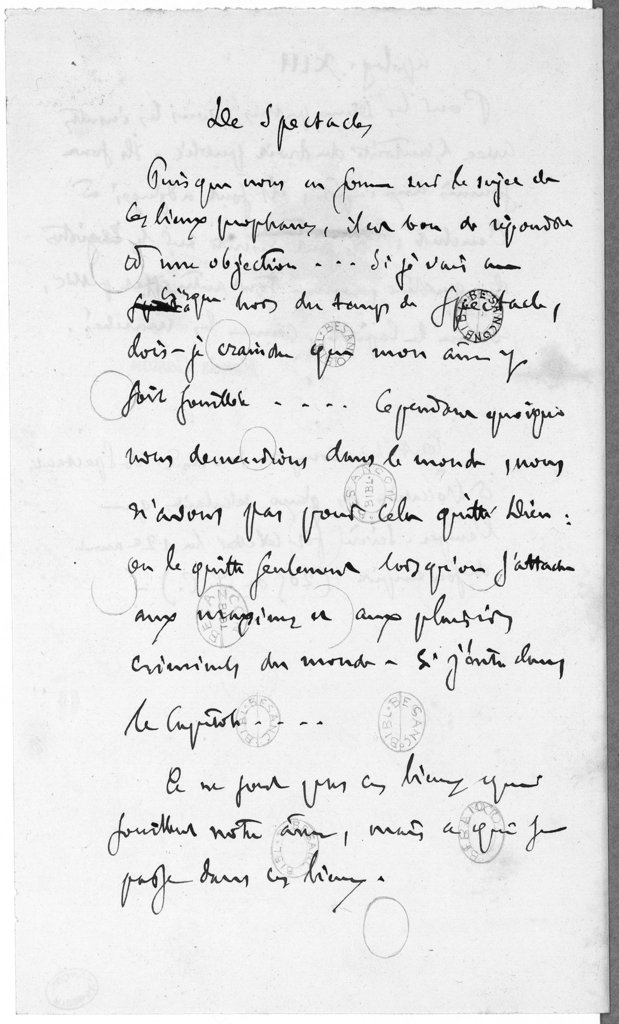 De Spectaculis
Puisque nous en sommes sur le sujet de
ces lieux prophanes, il est bon de répondre
à une objection . . . Si je vais au
cirque hors du temps du Spectacle,
dois-je craindre que mon âme y
soit souillée . . . . Cependant quoique
nous demeurions dans le monde, nous
n'avons pas pour cela quitté Dieu :
on le quitte seulement lorsqu'on s'attache
aux maximes et aux plaisirs
criminels du monde - Si j'entre dans
le Capitole . . . .
Ce ne sont pas ces lieux qui
souillent notre âme, mais ce qui se
passe dans ces lieux.
BIBL. BESANÇON
BIBL. BESANÇON
BIBL. BESANÇON
BIBL. BESANÇON
BIBL. BESANÇON
BIBL. BESANÇON